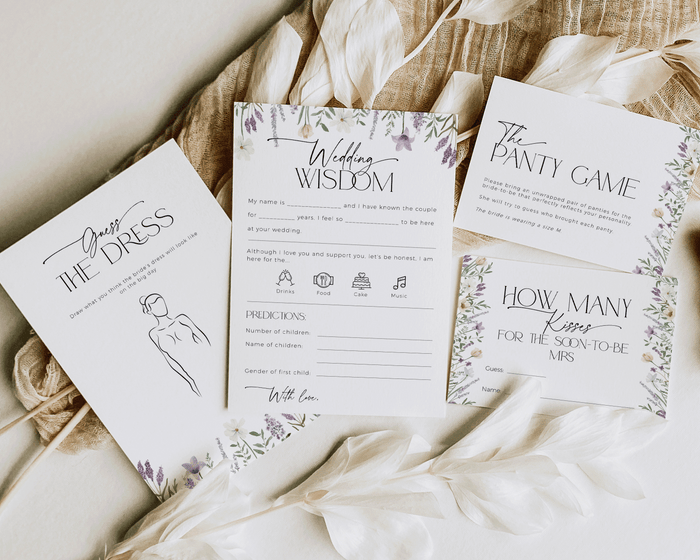 Guess
THE DRESS
Draw what you think the bride's dress will look like
on the big day
Wedding
WISDOM
My name is ____________ and I have known the couple
for __________ years. I feel so _______________ to be here
at your wedding.
Although I love and support you, let's be honest, I am
here for the...
Drinks
Food
Cake
Music
PREDICTIONS:
Number of children:
Name of children:
Gender of first child:
With love,
The
PANTY GAME
Please bring an unwrapped pair of panties for the
bride-to-be that perfectly reflects your personality
She will try to guess who brought each panty.
The bride is wearing a size M
HOW MANY
Kisses
FOR THE SOON-TO-BE
MRS
Guess:
Name: